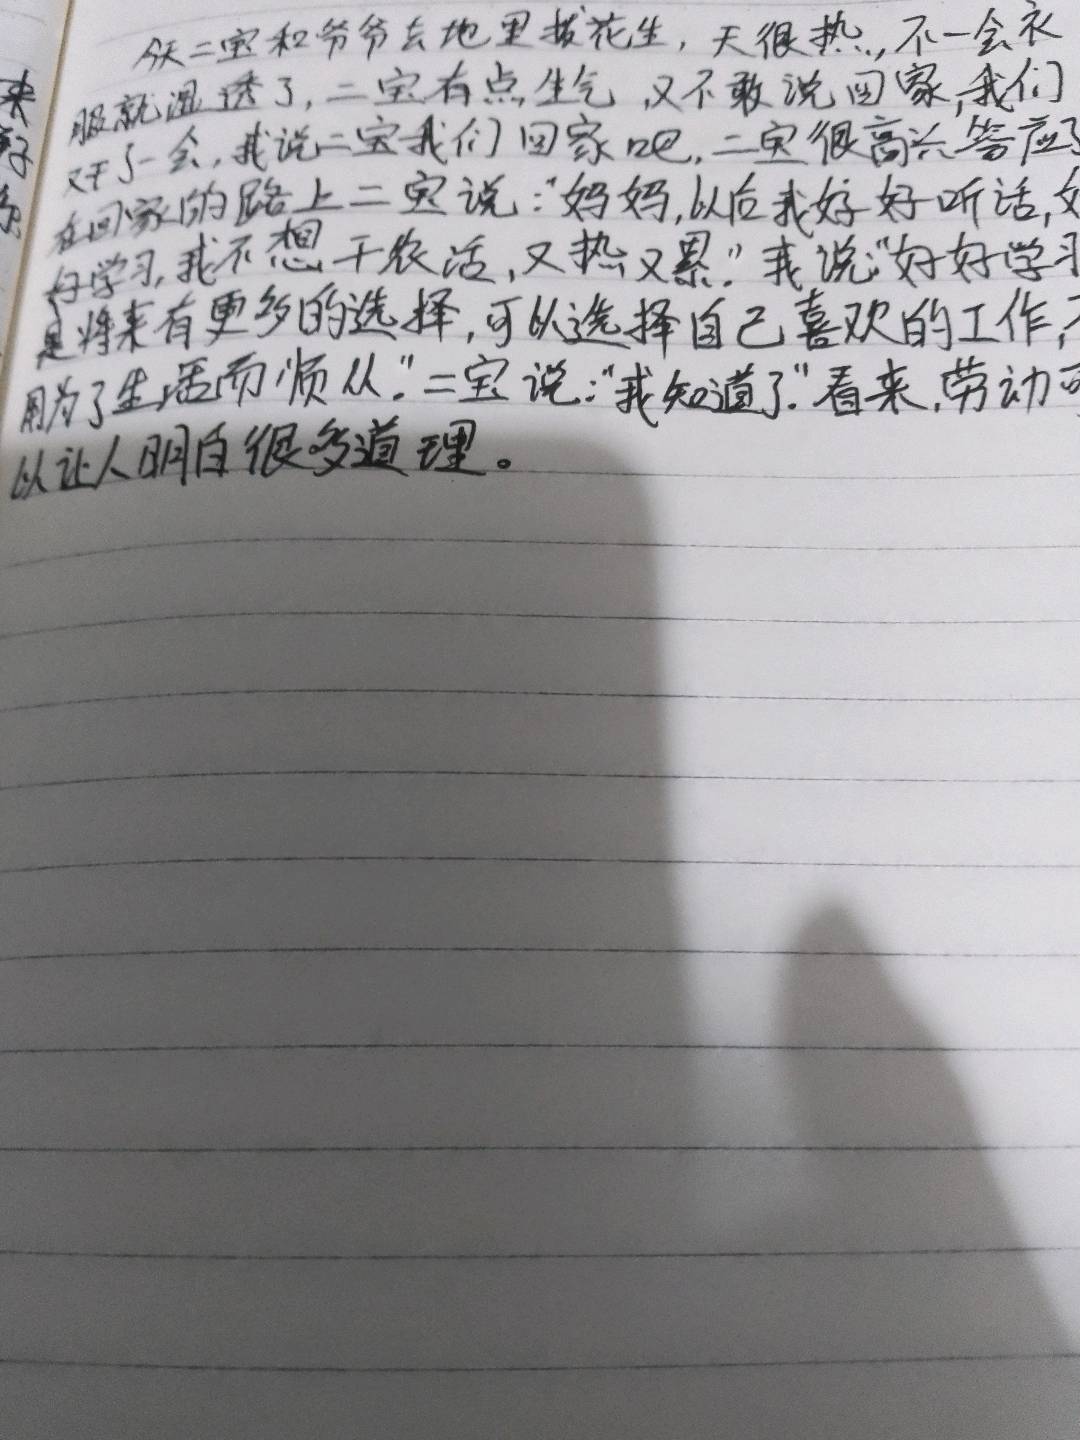 今天二宝和爷爷去地里拔花生，天很热，不一会衣
服就湿透了，二宝有点生气，又不敢说回家，我们
又干了一会，我说二宝我们回家吧，二宝很高兴答应了
在回家的路上二宝说：“妈妈，以后我好好听话，好
好学习，我不想干农活，又热又累。”我说：“好好学习
是将来有更多的选择，可以选择自己喜欢的工作，不
用为了生活而顺从。”二宝说：“我知道了。”看来，劳动可
以让人明白很多道理。